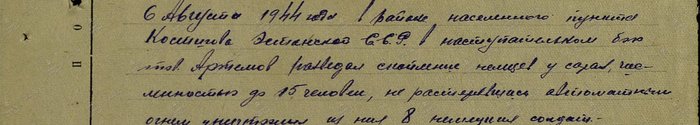 6 Августа 1944 года в районе населенного пункта
Костцива Эстонской С.С.Р. в наступательном бою
тов. Артемов разведал скопление немцев у сарая, чис-
ленностью до 15 человек, не растерявшись автоматным
огнем уничтожил из них 8 немецких солдат
П О